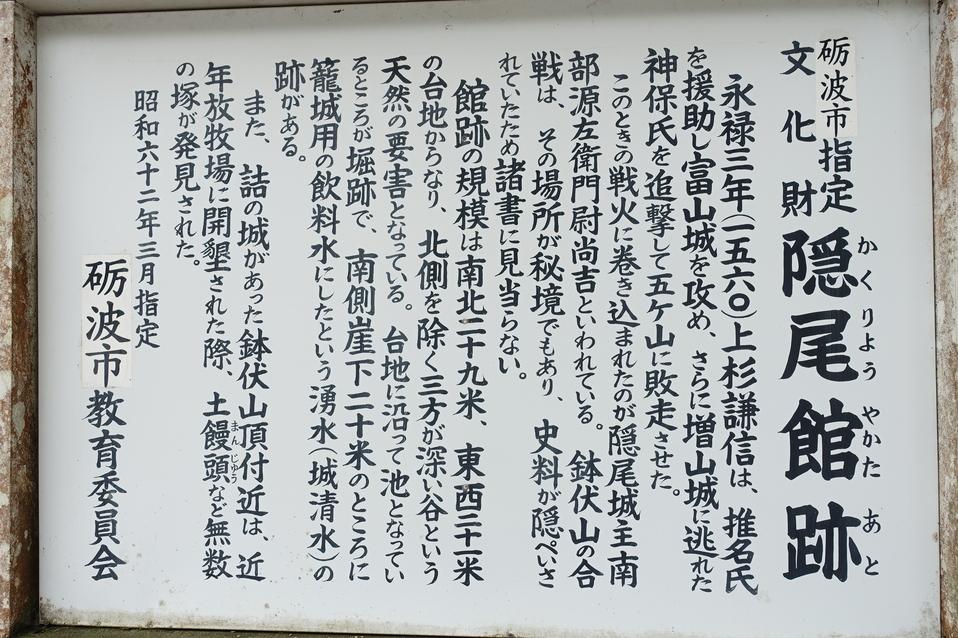 砺波市指定
文化財
隠尾館跡
かくりようやかたあと
永禄三年(一五六〇)上杉謙信は、推名氏
を援助し富山城を攻め、さらに増山城に逃れた
神保氏を追撃して五ケ山に敗走させた。
このときの戦火に巻き込まれたのが隠尾城主南
部源左衛門尉尚吉といわれている。鉢伏山の合
戦は、その場所が秘境でもあり、史料が隠ぺいさ
れていたため諸書に見当らない。
館跡の規模は南北二十九米、東西三十一米
の台地からなり、北側を除く三方が深い谷という
天然の要害となっている。台地に沿って池となってい
るところが堀跡で、南側崖下二十米のところに
籠城用の飲料水にしたという湧水(城清水)の
跡がある。
また、詰の城があった鉢伏山頂付近は、近
年放牧場に開墾された際、土饅頭など無数
まんじゅう
の塚が発見された。
昭和六十二年三月指定
砺波市教育委員会